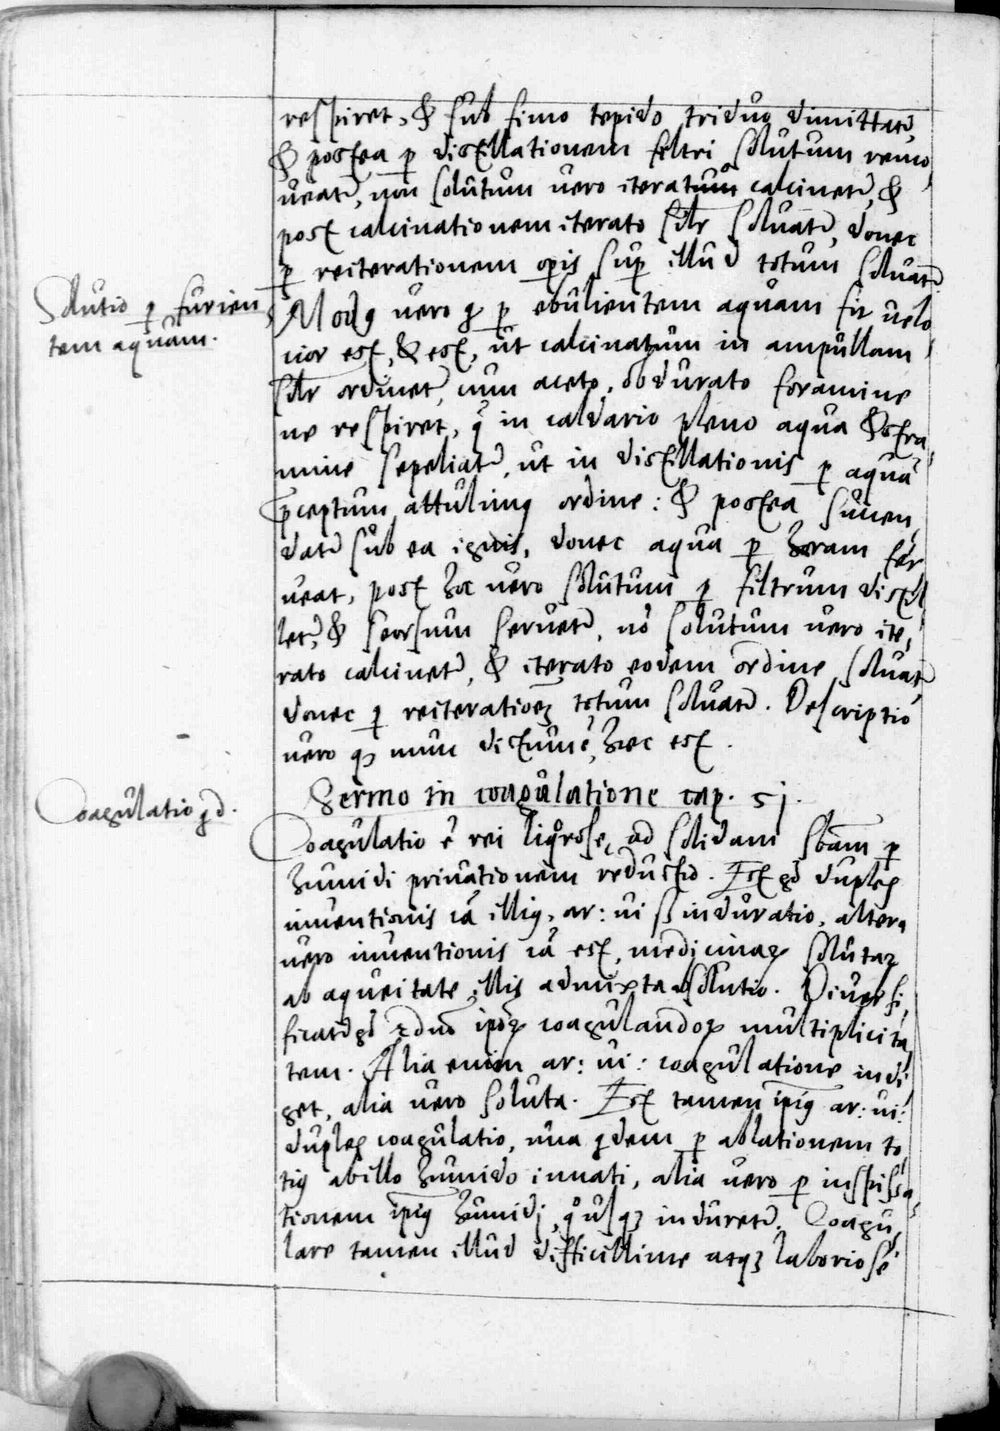 respiret, & sub fimo tepido triduo dimittatr̃,
& postea p̱ distillationem feltri solutum remo
veatr̃, non solutum vero iteratum calcinetr̃, &
post calcinationem iterato silr̃ solvatr̃, donec
p̱ reiterationem opis sup illud totum solvatr̃.
Solutio p̱ furien
tem aquam.
Modꝰ vero q̱ p̱ ebulientem aquam fit velo
cior est, & est, ut calcinatum in ampullam
silr̃ ordinetr̃, cum aceto, obdurato foramine
ne respiret, q̃ in caldario pleno aqua & stra
mine sepeliatr̃, ut in distillationis p̱ aquã
p̃ceptum attulimꝰ ordine: & postea succen
datr̃ sub ea ignis, donec aqua p̱ horam fer
veat, post hoc vero solutum p̱ filtrum distil
letr̃, & seorsum servetr̃, nõ solutum vero ite,
rato calcinetr̃, & iterato eodem ordine solvatr̃
donec p̱ reiterationẽ totum solvatr̃. Descriptio
vero qꝫ nunc dicturi, hec est.
Sermo in coagulatione cap. 51.
Coagulatio qd.
Coagulatio ẽ rei liquorose, ad solidam sbãm p̱
humidi privationem reductio. Est qd duplex
inventionis cã illiꝰ, ar: vi induratio, altera
vero inventionis cã est, medicinaꝝ solutaꝝ
ab aqueitate illis admixta solutio. Diversi,
ficatr̃ ipoꝝ coagulandoꝝ multiplicita
tem. Alia enim ar: vi: coagulatione indi
get, alia vero soluta. Est tamen ipiꝰ ar: vi:
duplex coagulatio, una qdem p̱ ablationem to
tiꝰ ab illo humido innati, alia vero p̱ inspissa
tionem ipiꝰ humidi, qousqꝫ induretr̃. Coagu,
lare tamen illud difficillime atqꝫ laboriose